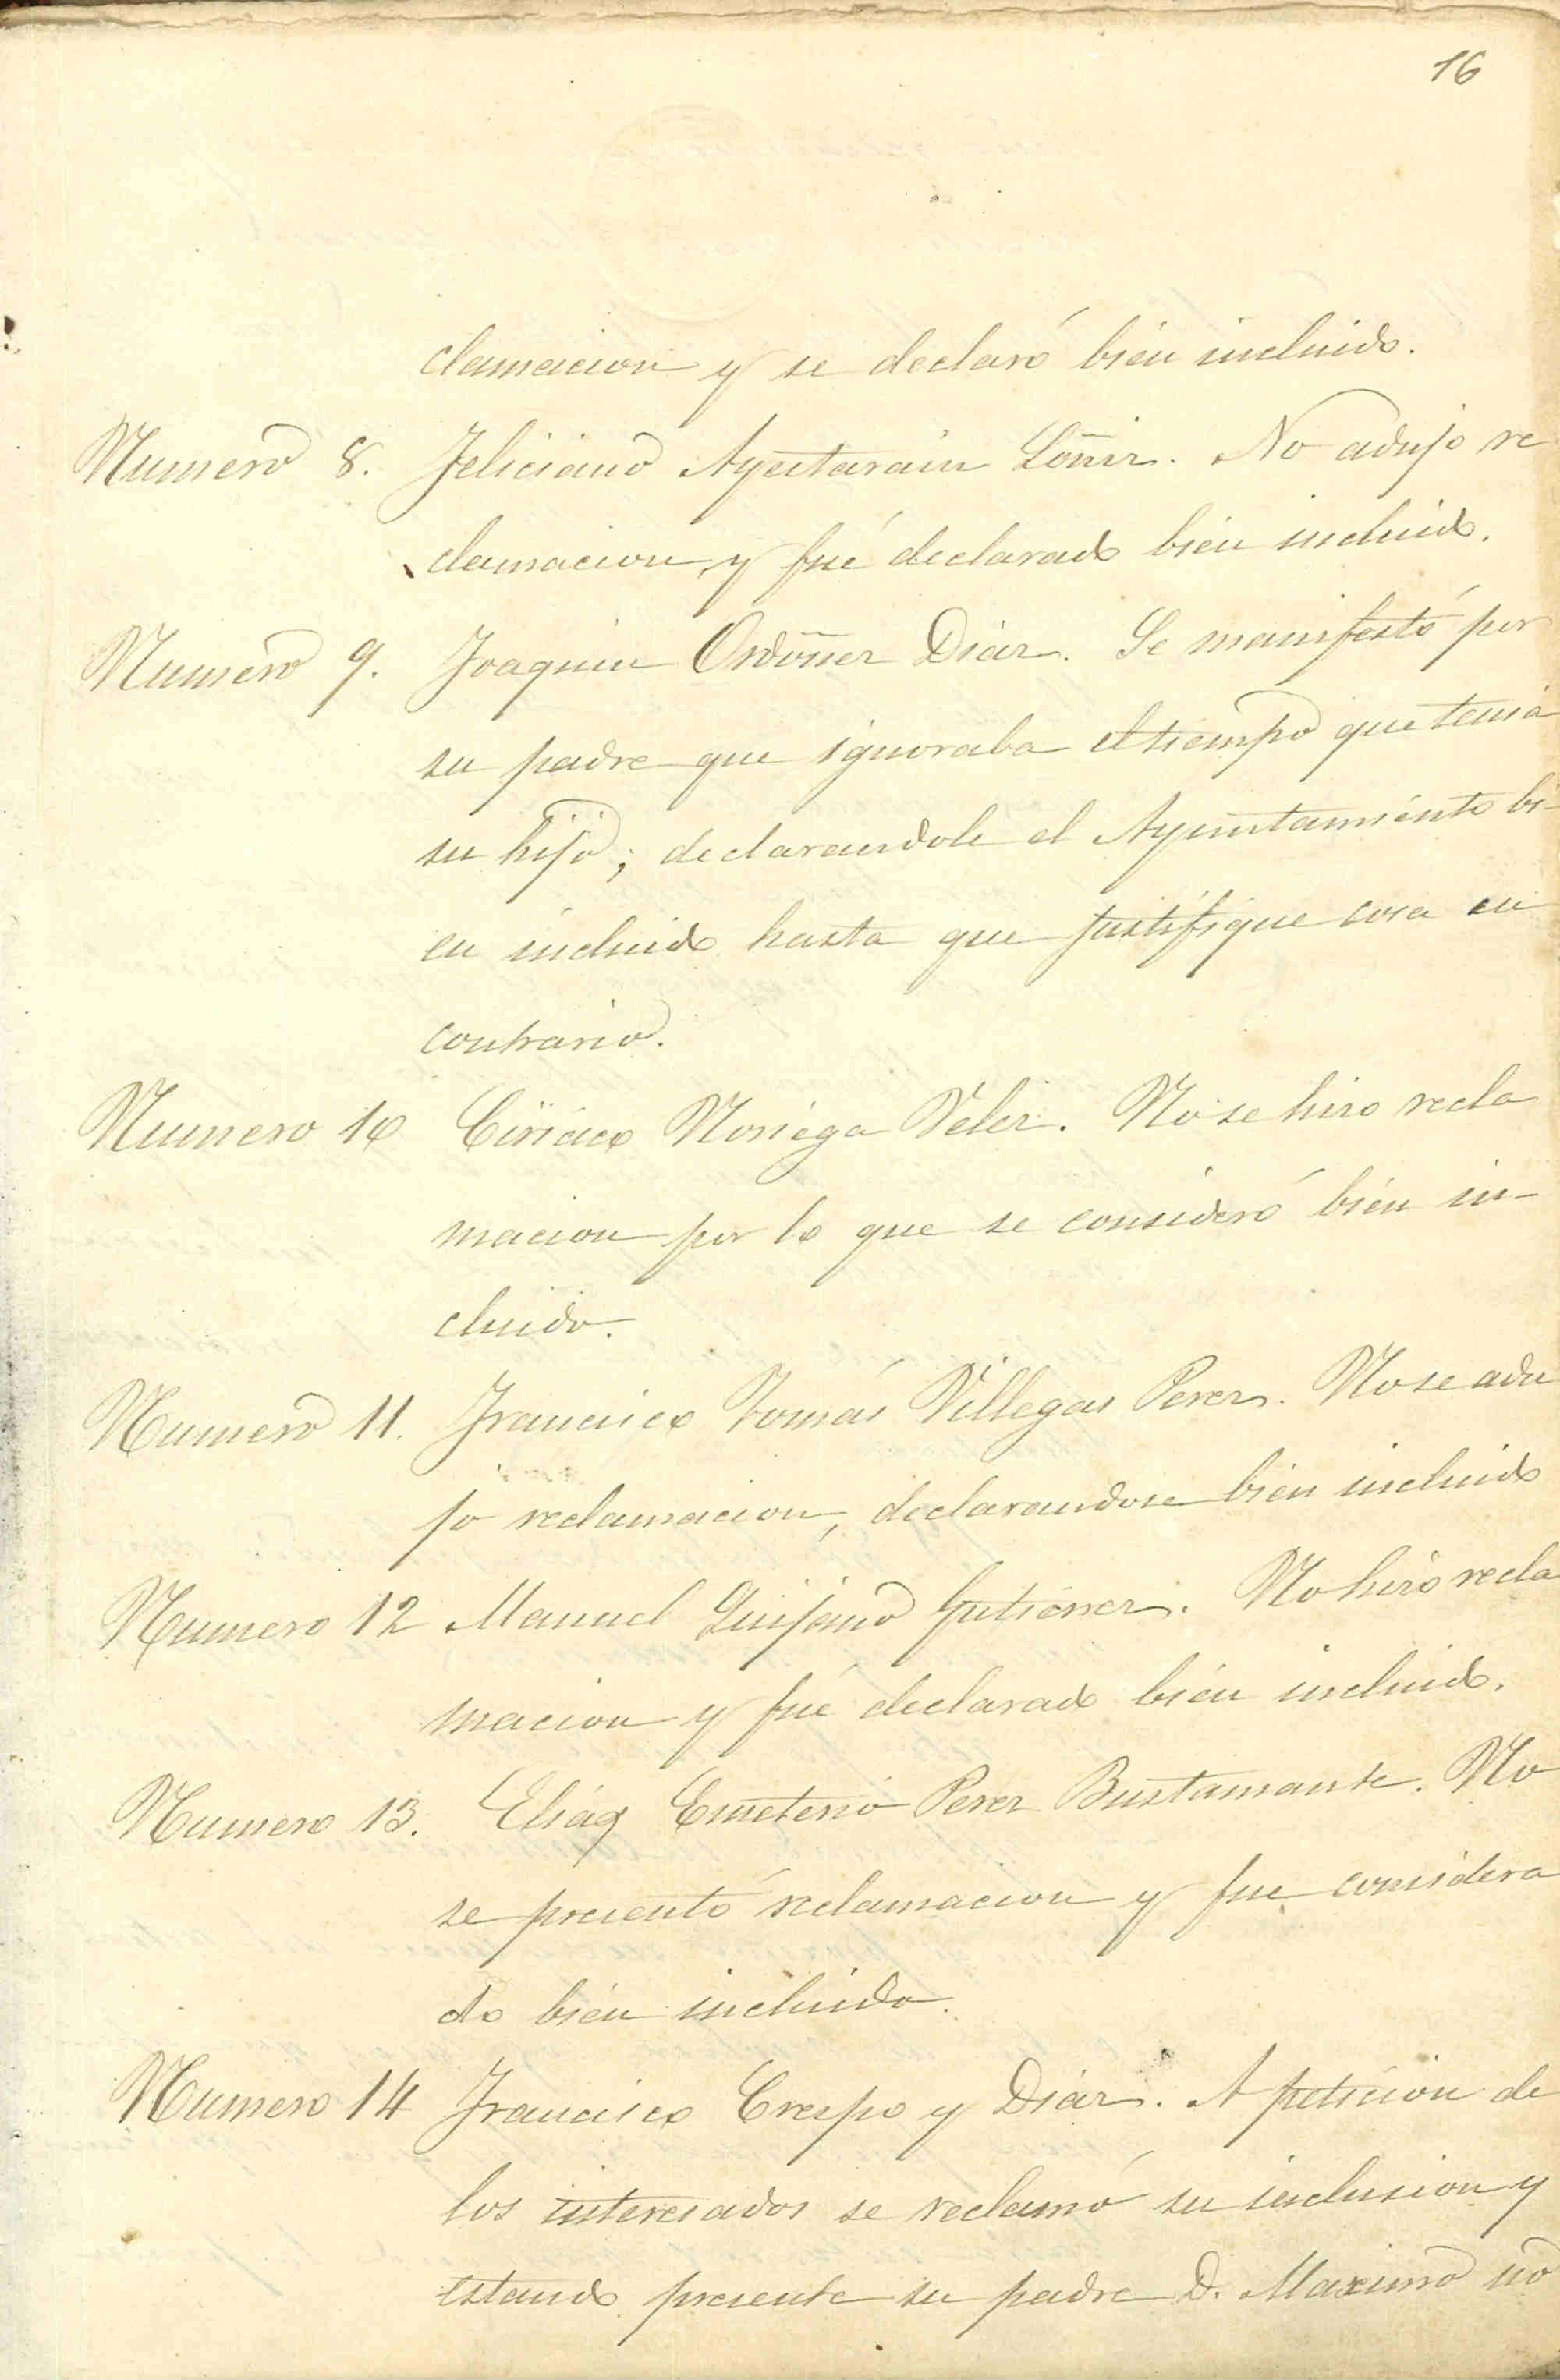 16
clamacion y se declaró bién incluido.
Numero 8. Feliciano Ayestarain Loñiz. No adujo re
clamacion, y fué declarado bién incluido.
Numero 9. Joaquin Ordoñez Diáz. Se manifestó por
su padre que ignoraba el tiempo que tenia
su hijo; declarandole el Ayuntamiénto bi-
en incluido hasta que justifique cosa en
contrario.
Numero 10 Ciriáco Noriéga Veléz. No se hizo recla
macion por lo que se consideró bién in-
cluido.
Numero 11. Francisco Tomás Villegas Perez. No se adu
jo reclamacion, declarandose bién incluido
Numero 12 Manuel Quijano Gutiérrez. No hizo recla
macion y fué declarado bién incluido.
Numero 13. Eliás Emeterio Perez Bustamante. No
se presentó reclamacion y fue considera
do bién incluido.
Numero 14 Francisco Crespo y Diáz. A peticion de
los interesados se reclamó su inclusion y
estando presente su padre D. Maximo no